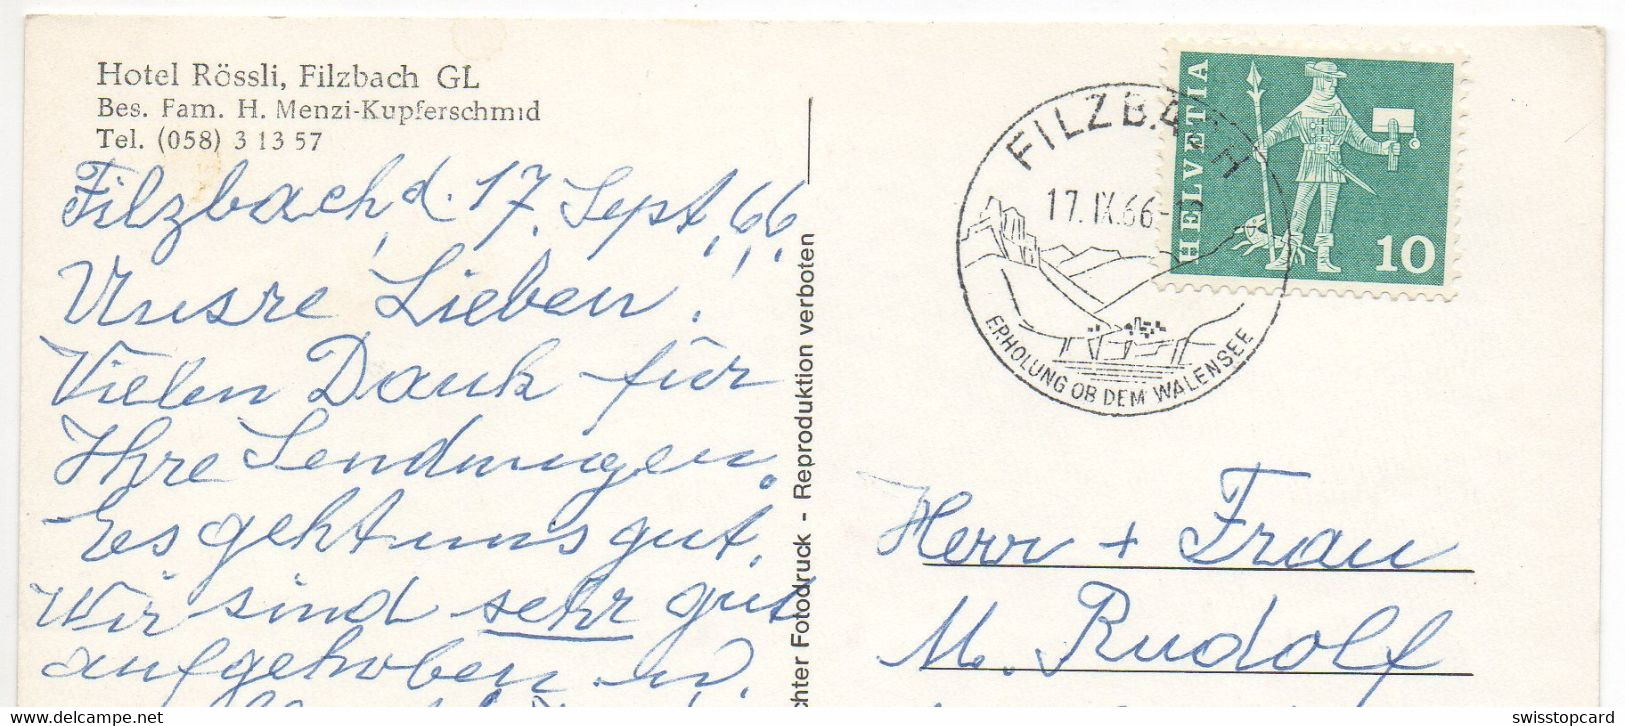 Hotel Rössli, Filzbach GL
Bes. Fam. H. Menzi-Kupferschmid
Tel. (058) 3 13 57
Filzbach, d. 17. Sept. 66.
Unsre Lieben!
Vielen Dank für
Ihre Sendungen.
Es geht uns gut.
Wir sind sehr gut
aufgehoben u.
chter Fotodruck - Reproduktion verboten
FILZBACH
17.IX.66-
ERHOLUNG OB DEM WALENSEE
HELVETIA
10
Herr + Frau
M. Rudolf
www.delcampe.net
swisstopcard